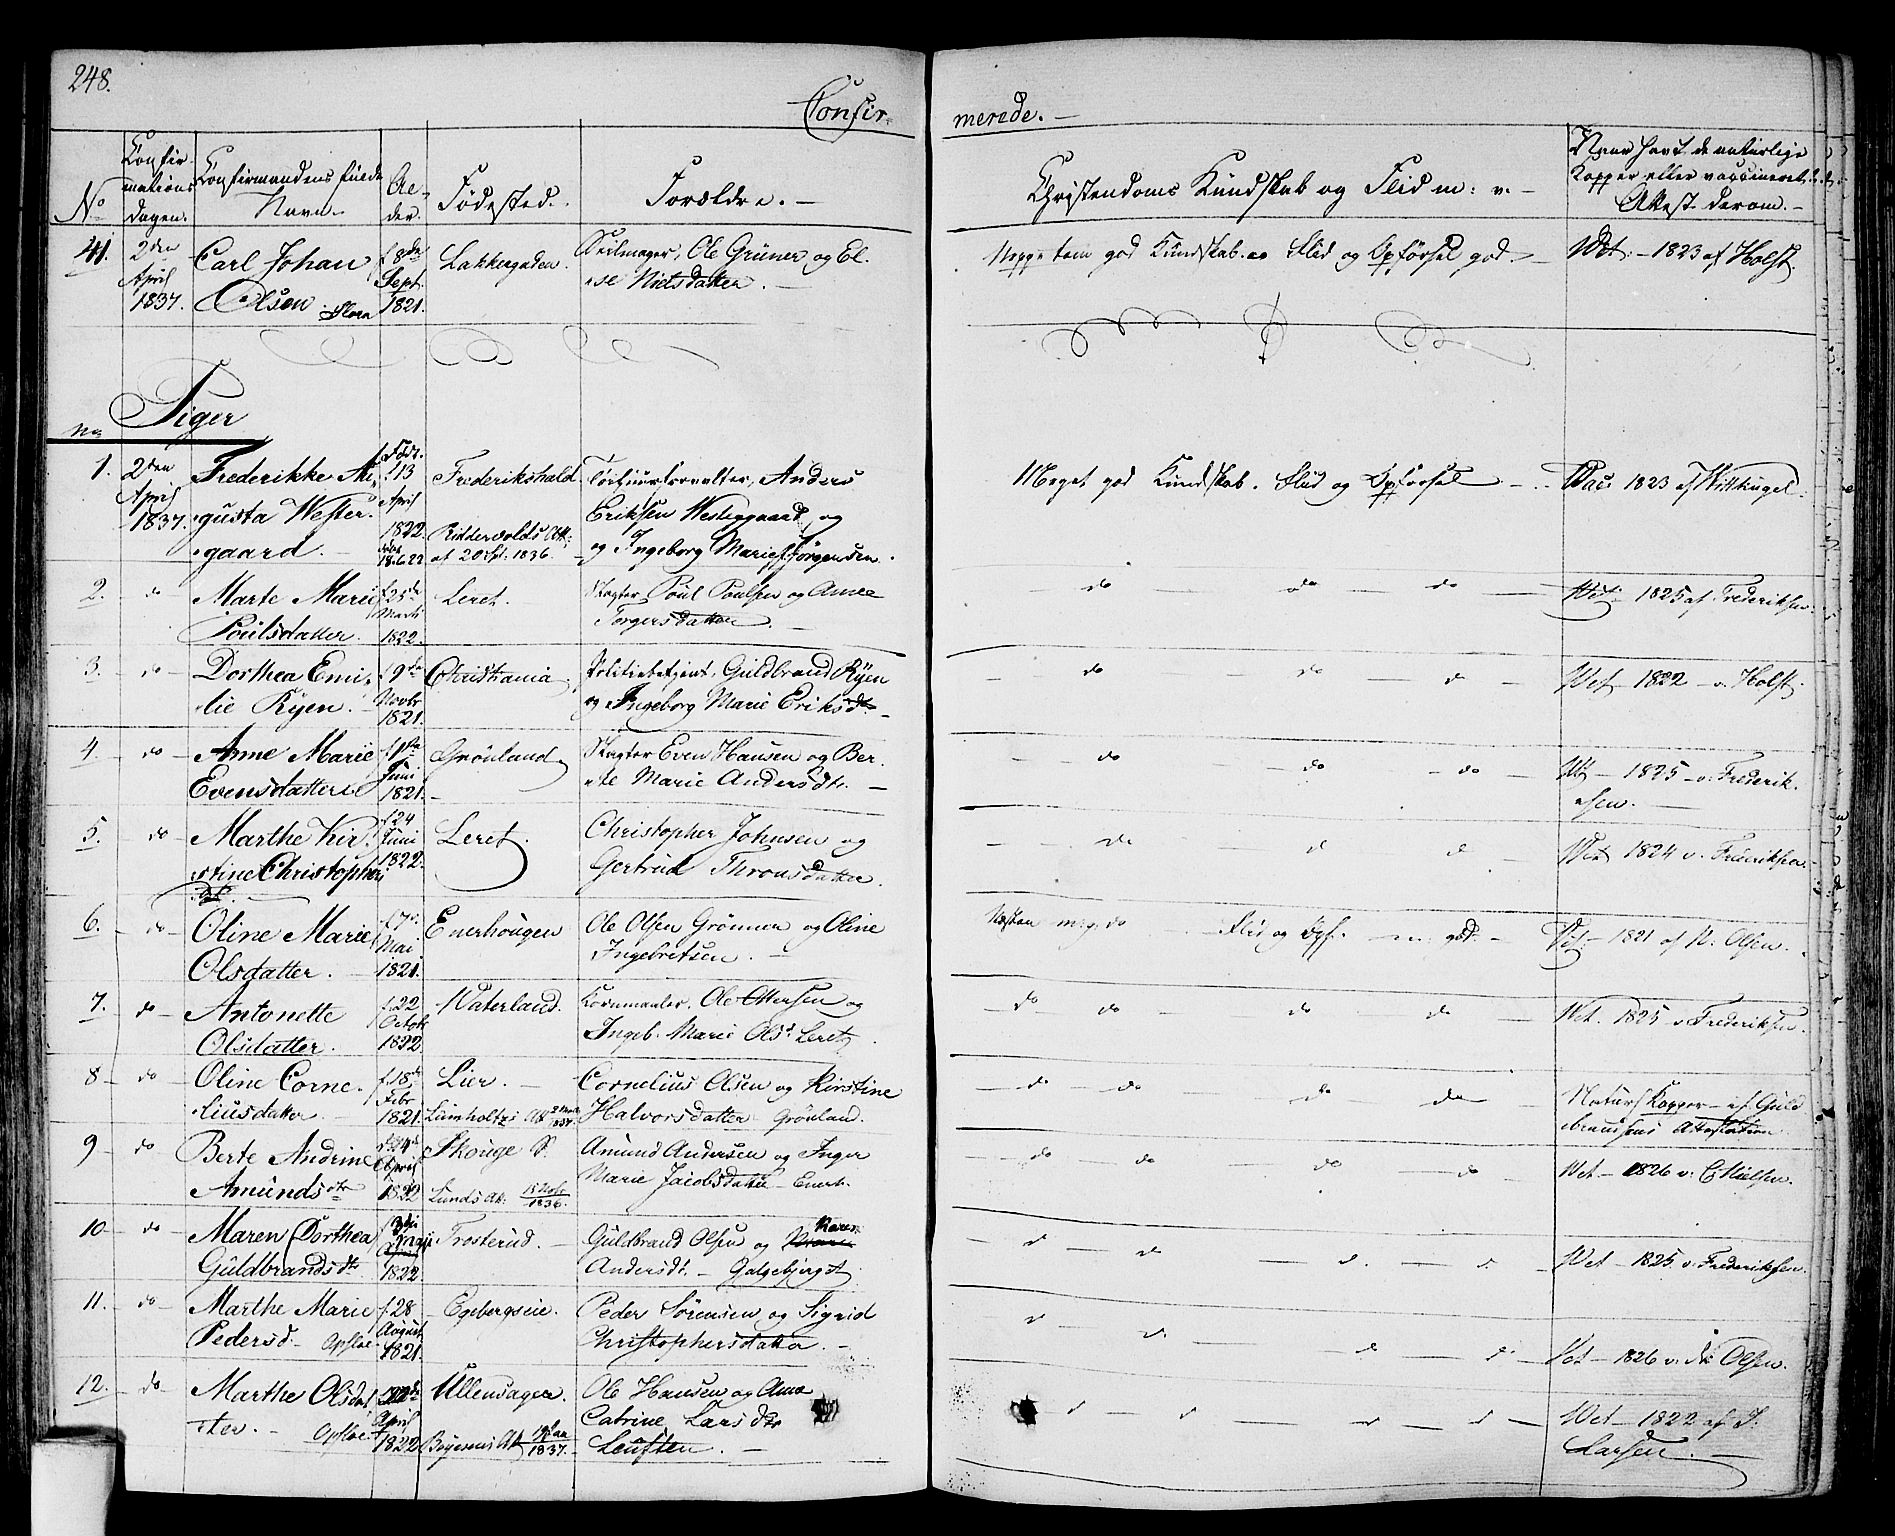 248.
Confir-
merede. -
No
Confir-
mations
Dagen.
Confirmandens fulde
Navn.
Al-
der.
Fødested.
Forældre. -
Christendoms Kundskab og Flid m: v. -
Naar havt de naturlige
Kopper eller vaccineret
Attest derom. -
41.
2den
April
1837.
Carl Johan
Olsen
f 8de
Sept.
1821.
Lakkergaden.
Seilmager, Ole Grüner og El-
se Nielsdatter. -
god Kundskab. Flid og Opførsel god. -
Vet. - 1823 af Holst.
No
Piger
1.
2den
April
1837.
Frederikke Au-
gusta Wester-
gaard. -
13
April
1822
Frederikshald
Ridderwolds Att:
af 20 Spt: 1836.
Anders
Eriksen Westergaard og
og Ingeborg Marie Jørgensen.
Meget god Kundskab. Flid og Opførsel -
Vac. 1823 af Wittkugel.
2.
do
Marte Marie
Poulsdatter.
f 25de
Marts
1822.
Leret.
Slagter Poul Poulsen og Anne
Torgersdatter. -
do do do
Vet. 1825 af Frederiksen.
3.
do
Dorthea Emi-
lie Ryen. -
f 9de
Novbr
1821.
Christiania.
Politiebetjent, Guldbrand Ryen
og Ingeborg Marie Eriksdt. -
do do d
Vet - 1822 - v. Holst.
4
do
Anne Marie
Evensdatter
f 1ste
Juni
1821.
Grønland
Slagter Even Hansen og Ber-
te Marie Andersdtr. -
do do do
Vet - 1825 - v. Frederik-
sen. -
5.
do
Marthe Kir-
stine Christophers
dt.
f. 24
Juni
1822.
Leret.
Christopher Johnsen og
Gertrud Thronsdatter.
do d d
Vet 1824 v. Frederiksen
6.
do
Oline Marie
Olsdatter. -
f 7de
Mai
1821.
Enerhougen
Ole Olsen Grønner og Oline
Ingebretsen. -
Næsten m: g: do Flid og Opf. - m: god. -
Vet - 1821 af N. Olsen.
7.
do
Antonette
Olsdatter.
f. 22
Octob:
1822.
Vaterland.
Kornmaaler. Ole Ottersen og
Ingeb. Marie Olsd. Leret.
do do do do
Vet. 1825 v Frederiksen.
8
do
Oline Corne-
liusdatter
f. 18de
Febr
1821.
Lier. -
Lumholtzs Att
1837.
Cornelius Olsen og Kirstine
Halvorsdatter Grønland.
do do do do
Naturl Kopper - af Guld
bransens Attestation
9
do
Berte Andrine
Amundsdtr
April
1822
Skouge P.
Lunds At:
15 Nov.
1836.
Amund Andersen og Inger
Marie Jacobsdatter - Enerh.
do do do do
Vet - 1826 v. C Nielsen.
10
do
Maren Dorthea
Guldbrandsdt
3die
Maji
1822
Trosterud. -
Guldbrand Olsen og Maren
Andersdt. - Galgebjerget.
d d d d
Vet - 1825 v. Frederiksen.
11.
do
Marthe Marie
Pedersd. - Opsloe
f. 28
August
1821.
Egebergseie.
Peder Sørensen og Sigrid
Christophersdatter. -
d d d d
Vet - 1826 v. Olsen.
12.
do
Marthe Olsdat-
ter. - Opsloe
April
1822
Ullensager.
1837.
Ole Hansen og Anne
Catrine Larsdtr
Leuften. -
d d d d
Vet - 1822 af J.
Larsen. -